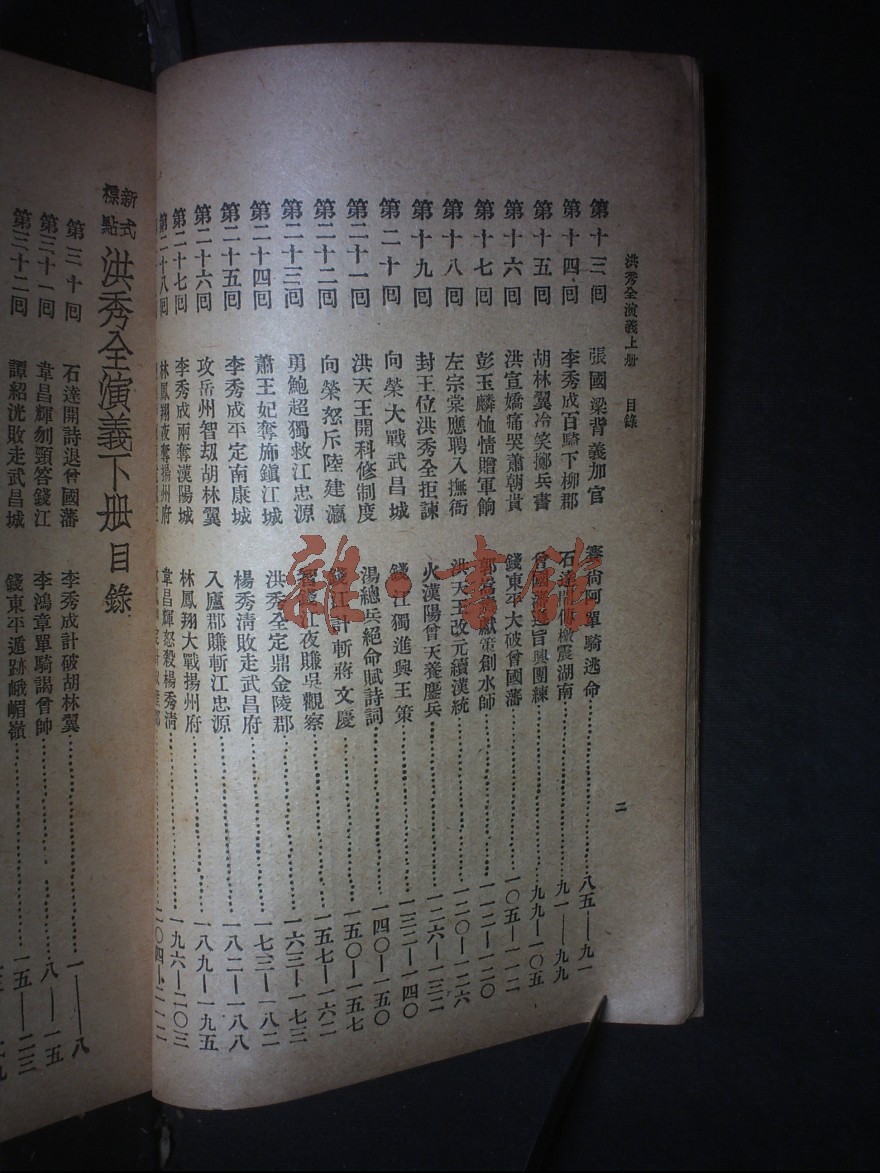 洪秀全演義上册 目錄 二
第十三回 張國梁背義加官 賽尚阿單騎逃命 八五—九一
第十四回 李秀成百騎下柳郡 石達開傳檄震湖南 九一—九九
第十五回 胡林翼冷笑擲兵書 曾國藩 旨興團練 九九—一〇五
第十六回 洪宣嬌痛哭蕭朝貴 錢東平大破曾國藩 一〇五—一一二
第十七回 彭玉麟恤情贈軍餉 郭嵩燾獻策創水師 一一二—一二〇
第十八回 左宗棠應聘入撫衙 洪天王改元續漢統 一二〇—一二六
第十九回 封王位洪秀全拒諫 火漢陽曾天養鏖兵 一二六—一三二
第二十回 向榮大戰武昌城 錢江獨進興王策 一三二—一四〇
第二十一回 洪天王開科修制度 湯總兵絕命賦詩詞 一四〇—一五〇
第二十二回 向榮怒斥陸建瀛 錢江計斬蔣文慶 一五〇—一五七
第二十三回 勇鮑超獨救江忠源 智錢江夜賺吳觀察 一五七—一六二
第二十四回 蕭王妃奪旆鎭江城 洪秀全定鼎金陵郡 一六三—一七三
第二十五回 李秀成平定南康城 楊秀清敗走武昌府 一七三—一八二
第二十六回 攻岳州智刼胡林翼 入廬郡賺斬江忠源 一八二—一八八
第二十七回 李秀成兩奪漢陽城 林鳳翔大戰揚州府 一八九—一九五
第二十八回 林鳳翔夜奪揚州府 韋昌輝怒殺楊秀清 一九六—二〇三
新式標點 洪秀全演義下册目錄
第三十回 石達開詩退曾國藩 李秀成計破胡林翼 一—八
第三十一回 韋昌輝刎頸答錢江 李鴻章單騎謁曾帥 八—一五
第三十二回 譚紹洸敗走武昌城 錢東平遁跡峨嵋嶺 一五—二三
雜·書館